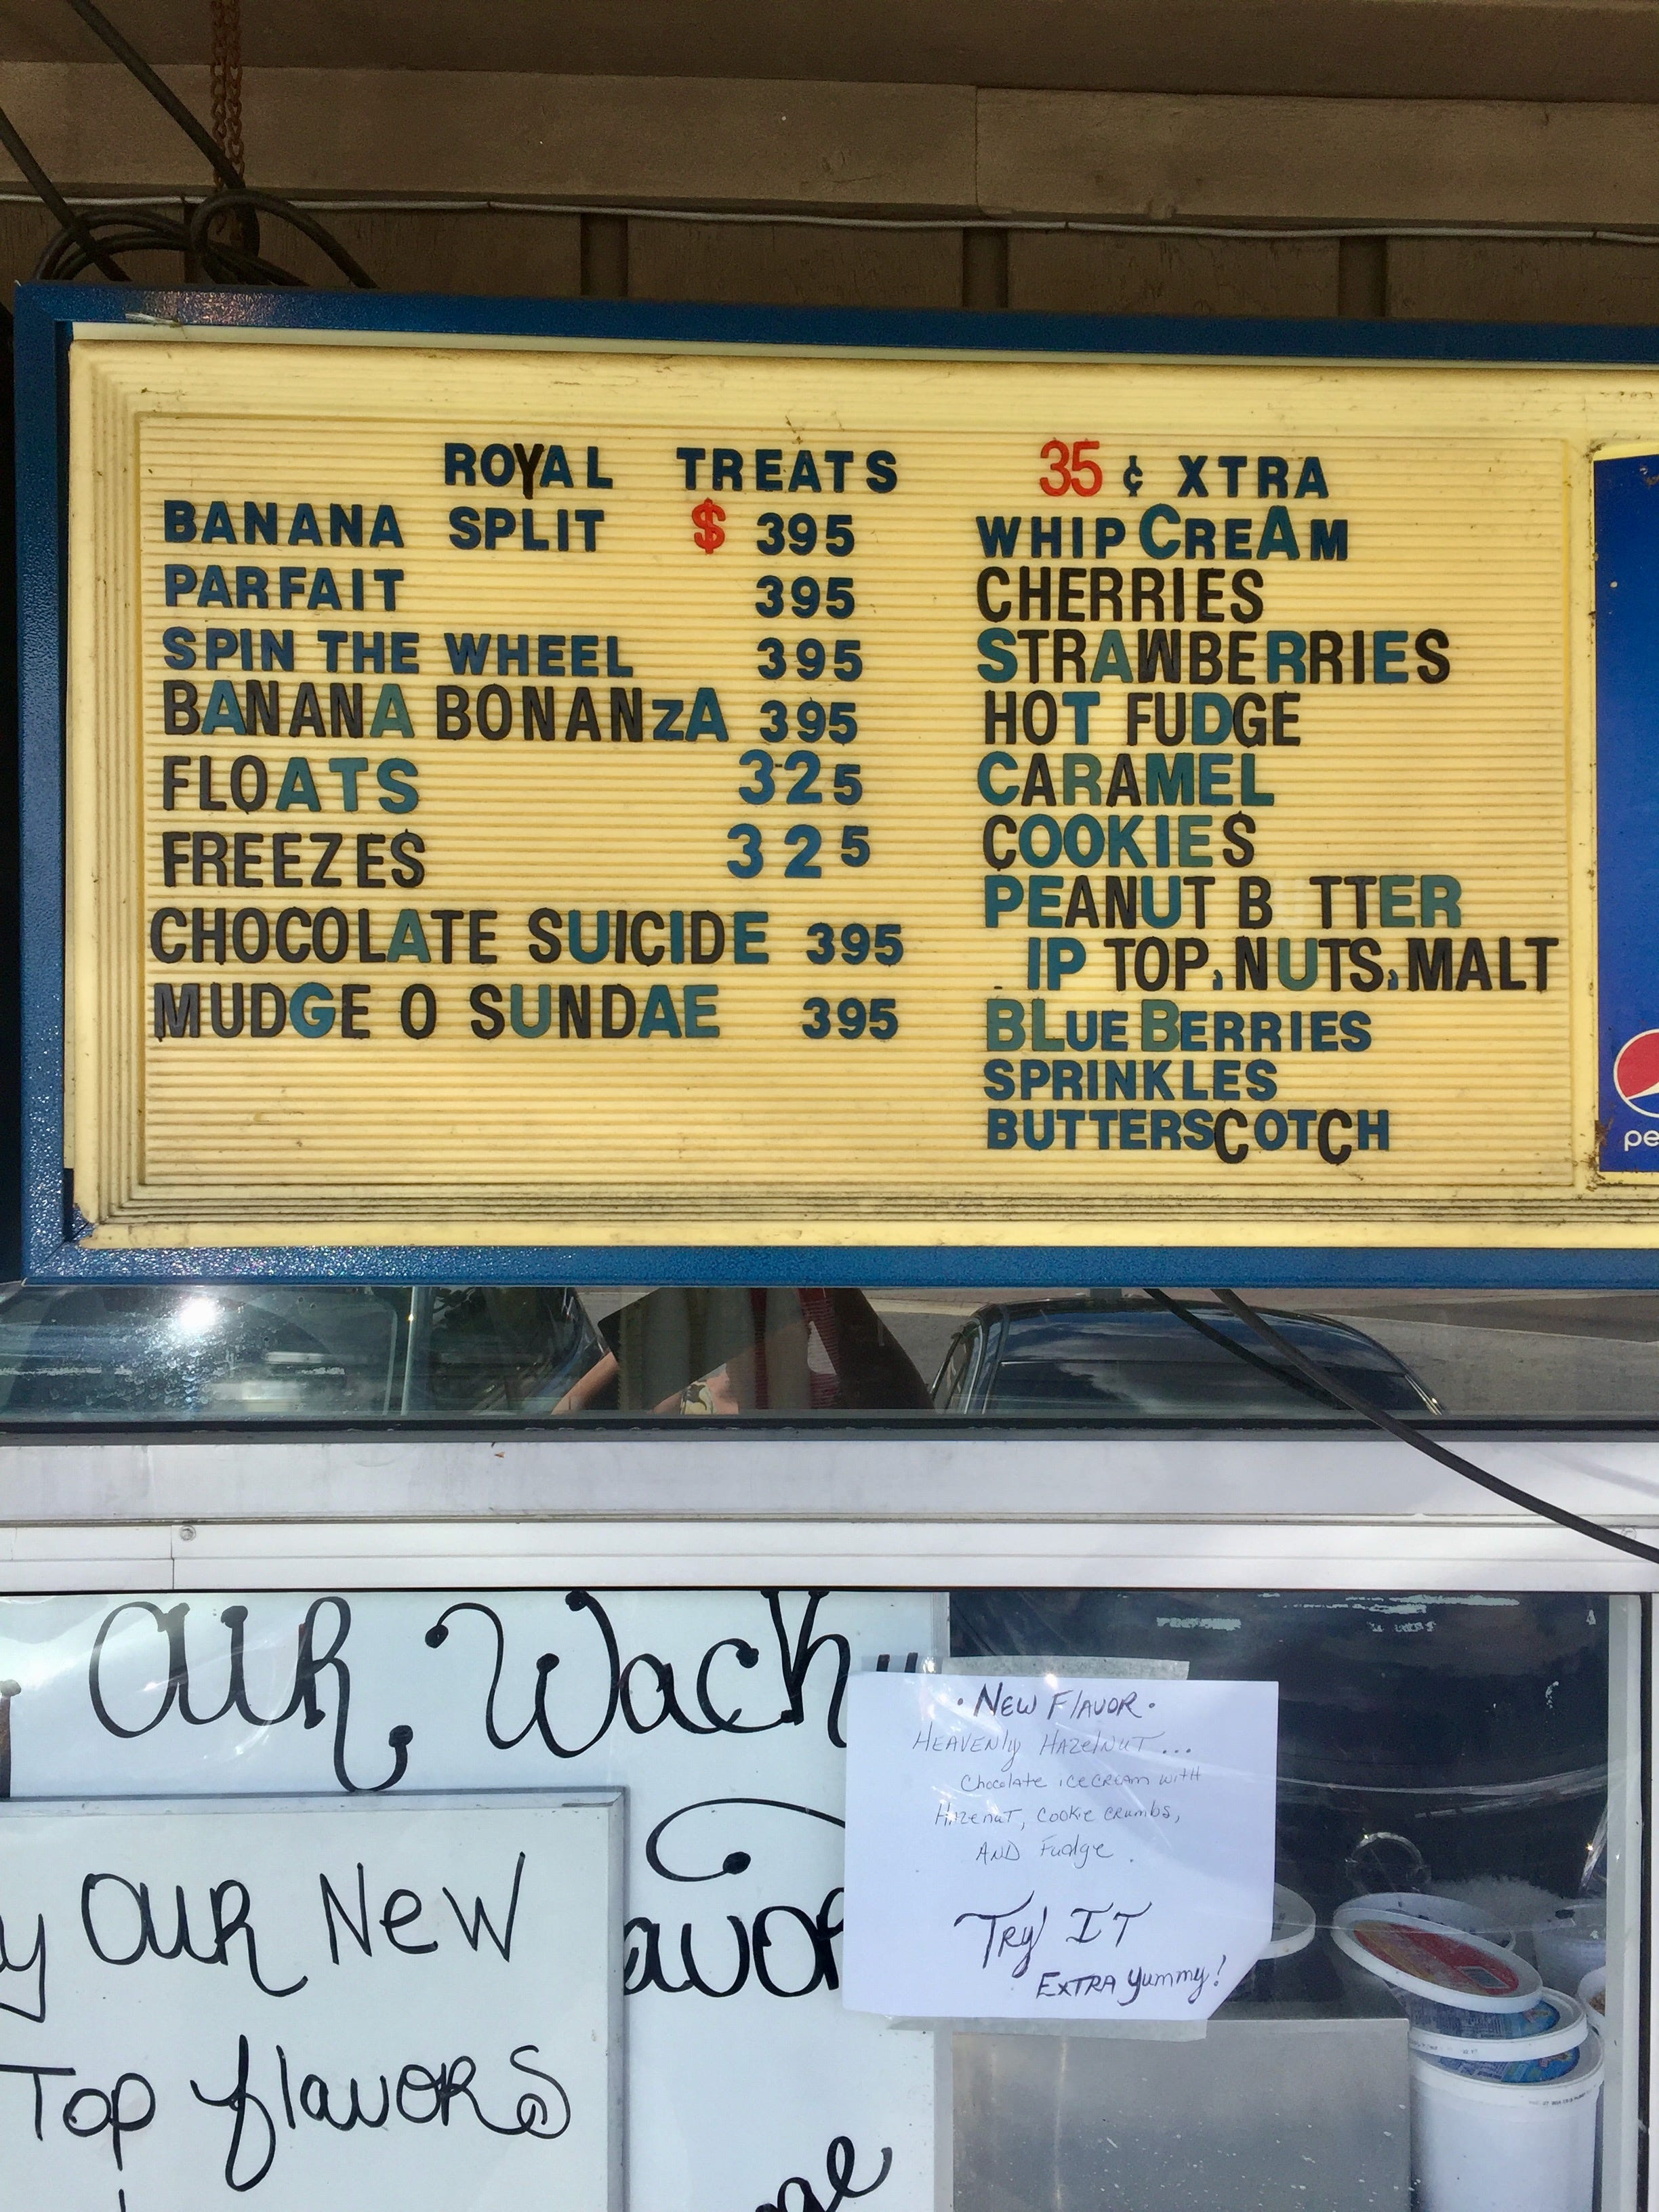 ROYAL TREATS
BANANA SPLIT $ 395
PARFAIT 395
SPIN THE WHEEL 395
BANANA BONANZA 395
FLOATS 325
FREEZES 325
CHOCOLATE SUICIDE 395
MUDGE O SUNDAE 395
35 ¢ XTRA
WHIP CREAM
CHERRIES
STRAWBERRIES
HOT FUDGE
CARAMEL
COOKIES
PEANUT B TTER
IP TOP, NUTS, MALT
BLUEBERRIES
SPRINKLES
BUTTERSCOTCH
pe
OUR Wacky
avor
y OUR New
Top flavors
• New Flavor •
Heavenly Hazelnut...
Chocolate ice cream with
Hazenut, cookie crumbs,
AND Fudge.
Try IT
EXTRA yummy!